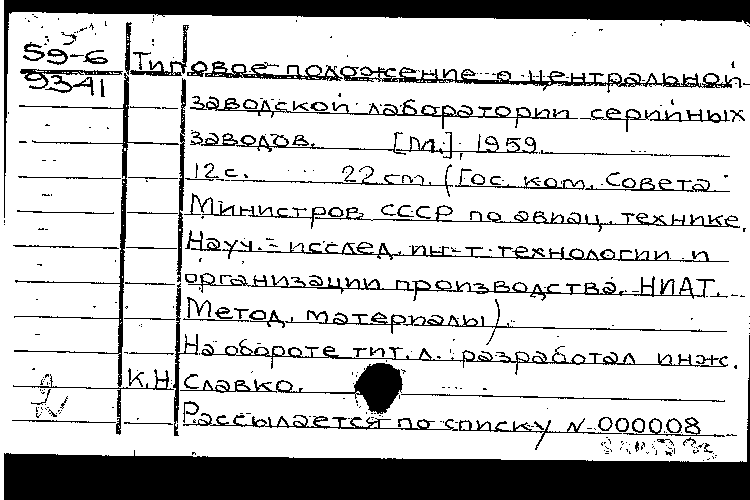 59-6 Типовое положение о центральной
93-41
заводской лаборатории серийных
заводов. [М.], 1959.
12 с. 22 см. (Гос. ком. Совета
Министров СССР по авиац. технике.
Науч.-исслед. ин-т технологии и
организации производства. НИАТ.
Метод. материалы).
На обороте тит. л.: разработал инж.
К.Н. Славко.
2
Рассылается по списку № 000008